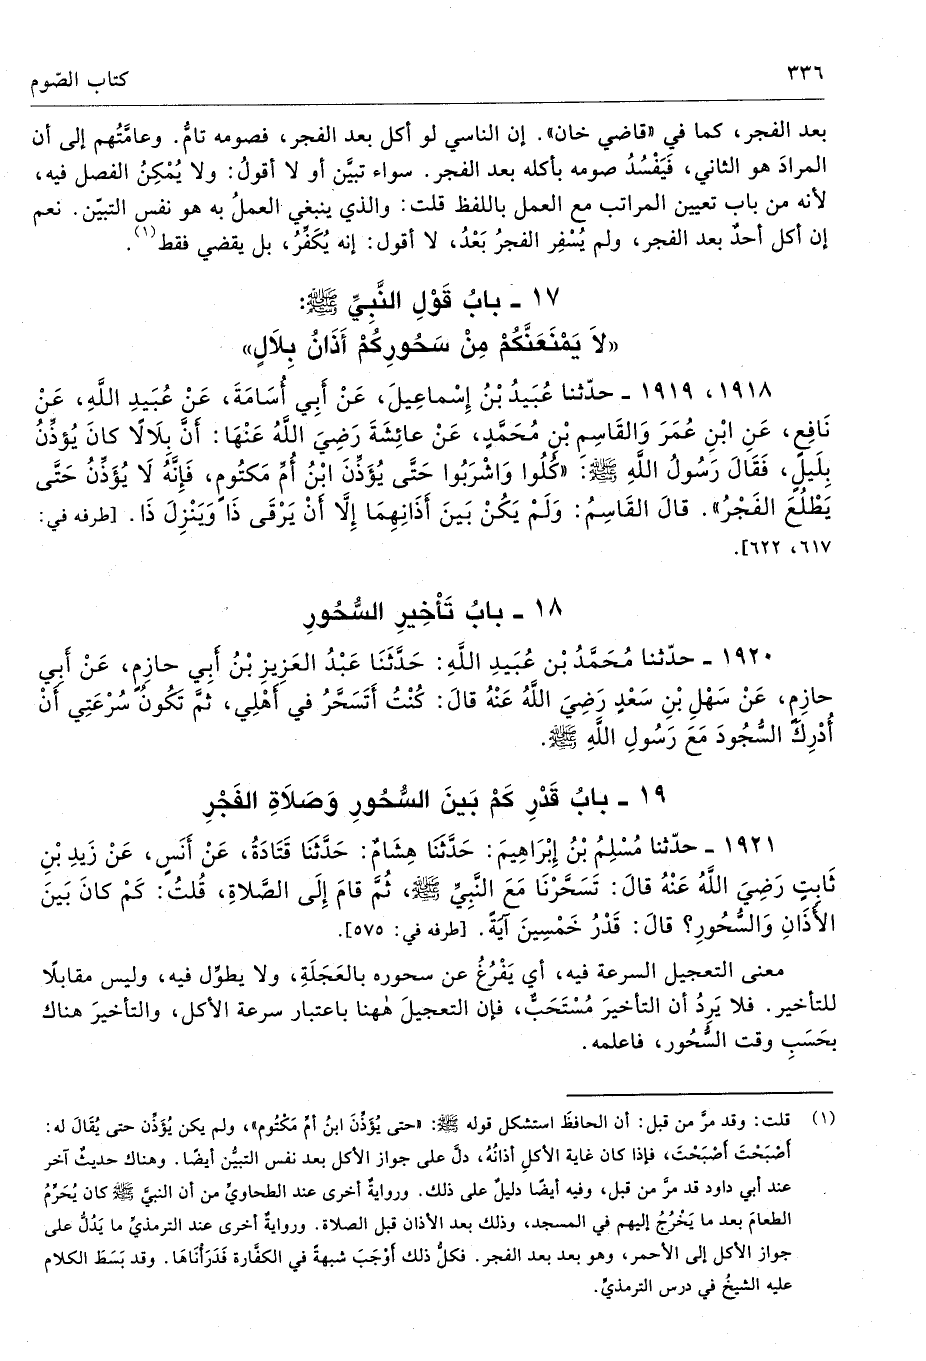 ٣٣٦
كتاب الصّوم
بعد الفجر، كما في «قاضي خان». إن الناسي لو أكل بعد الفجر، فصومه تامٌّ. وعامَّتُهم إلى أن
المرادَ هو الثاني، فَيَفْسُدُ صومه بأكله بعد الفجر. سواء تبيَّن أو لا أقولُ: ولا يُمْكِنُ الفصل فيه،
لأنه من باب تعيين المراتب مع العمل باللفظ قلت: والذي ينبغي العملُ به هو نفس التبيّن. نعم
إن أكل أحدٌ بعد الفجر، ولم يُسْفِر الفجرُ بَعْدُ، لا أقول: إنه يُكَفِّرُ، بل يقضي فقط(١).
١٧ ـ بابُ قَوْلِ النَّبِيِّ ﷺ:
«لاَ يَمْنَعَنَّكُمْ مِنْ سَحُورِكُمْ أَذَانُ بِلَالٍ»
١٩١٨، ١٩١٩ ـ حدّثنا عُبَيدُ بْنُ إِسْماعِيلَ، عَنْ أَبِي أُسَامَةَ، عَنْ عُبَيدِ اللَّهِ، عَنْ
نَافِعٍ، عَنِ ابْنِ عُمَرَ وَالقَاسِمِ بْنِ مُحَمَّدٍ، عَنْ عائِشَةَ رَضِيَ اللَّهُ عَنْهَا: أَنَّ بِلَالًا كانَ يُؤَذِّنُ
بِلَيلٍ، فَقَالَ رَسُولُ اللَّهِ ﷺ: «كُلُوا وَاشْرَبُوا حَتَّى يُؤَذِّنَ ابْنُ أُمِّ مَكتُومٍ، فَإِنَّهُ لَا يُؤَذِّنُ حَتَّى
يَطْلُعَ الفَجْرُ». قالَ القَاسِمُ: وَلَمْ يَكُنْ بَينَ أَذَانِهِمَا إِلَّا أَنْ يَرْقَى ذَا وَيَنْزِلَ ذَا. [طرفه في:
٦١٧، ٦٢٢].
١٨ ـ بابُ تَأْخِيرِ السُّحُورِ
١٩٢٠ ـ حدّثنا مُحَمَّدُ بْنُ عُبَيدِ اللَّهِ: حَدَّثَنَا عَبْدُ العَزِيزِ بْنُ أَبِي حازِمٍ، عَنْ أَبِي
حازِمٍ، عَنْ سَهْلِ بْنِ سَعْدٍ رَضِيَ اللَّهُ عَنْهُ قالَ: كُنْتُ أَتَسَحَّرُ في أَهْلِي، ثمَّ تَكُونُ سُرْعَتِي أَنْ
أُدْرِكَ السُّجُودَ مَعَ رَسُولِ اللَّهِ ﷺ.
١٩ ـ بابُ قَدْرِ كَمْ بَينَ السُّحُورِ وَصَلَاةِ الفَجْرِ
١٩٢١ ـ حدّثنا مُسْلِمُ بْنُ إِبْرَاهِيمَ: حَدَّثَنَا هِشَامٌ: حَدَّثَنَا قَتَادَةُ، عَنْ أَنَسٍ، عَنْ زَيدِ بْنِ
ثَابِتٍ رَضِيَ اللَّهُ عَنْهُ قالَ: تَسَحَّرْنَا مَعَ النَّبِيِّ ﷺ، ثُمَّ قامَ إِلَى الصَّلاةِ، قُلتُ: كَمْ كانَ بَينَ
الأَذَانِ وَالسُّحُورِ؟ قالَ: قَدْرُ خَمْسِينَ آيَةً. [طرفه في: ٥٧٥].
معنى التعجيل السرعة فيه، أي يَفْرُغُ عن سحوره بالعَجَلَةِ، ولا يطوِّل فيه، وليس مقابلًا
للتأخير. فلا يَرِدُ أن التأخيرَ مُسْتَحَبٌّ، فإن التعجيلَ هٰهنا باعتبار سرعة الأكل، والتأخيرَ هناك
بحَسَبِ وقت السُّحُور، فاعلمه.
(١) قلت: وقد مرَّ من قبل: أن الحافظَ استشكل قوله ﷺ: «حتى يُؤَذِّنَ ابنُ أمِّ مَكْتُوم»، ولم يكن يُؤَذِّن حتى يُقَالَ له:
أَصْبَحْتَ أَصْبَحْتَ، فإذا كان غاية الأكلِ أذانُهُ، دلَّ على جواز الأكل بعد نفس التبيُّن أيضًا. وهناك حديثٌ آخر
عند أبي داود قد مرَّ من قبل، وفيه أيضًا دليلٌ على ذلك. وروايةٌ أخرى عند الطحاويِّ من أن النبيَّ ﷺ كان يُحَرِّمُ
الطعامَ بعد ما يَخْرُجُ إليهم في المسجد، وذلك بعد الأذان قبل الصلاة. وروايةٌ أخرى عند الترمذيِّ ما يَدُلُّ على
جواز الأكل إلى الأحمر، وهو بعد بعد الفجر. فكلُّ ذلك أَوْجَبَ شبهةً في الكفَّارة فَدَرَأْنَاهَا. وقد بَسَطَ الكلام
عليه الشيخُ في درس الترمذيِّ.